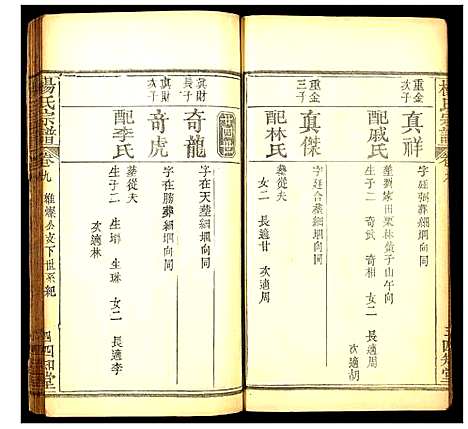 楊氏宗譜
重金
次子
真祥
字廷弼葬細垇向同
配戚氏
葬劉家田栗林黃子山午向
生子二 奇武 奇相 女二 長適周
次適胡
重金
三子
真傑
字廷合葬細垇向同
配林氏
葬從夫
女二 長適甘 次適周
五四知堂
真財
長子
奇龍
字在天葬細垇向同
真財
次子
奇虎
字在勝葬細垇向同
配李氏
葬從夫
生子二 生琳 女二 長適李
次適林
楊氏宗譜
卷九
維燦公支下世系紀
四四知堂